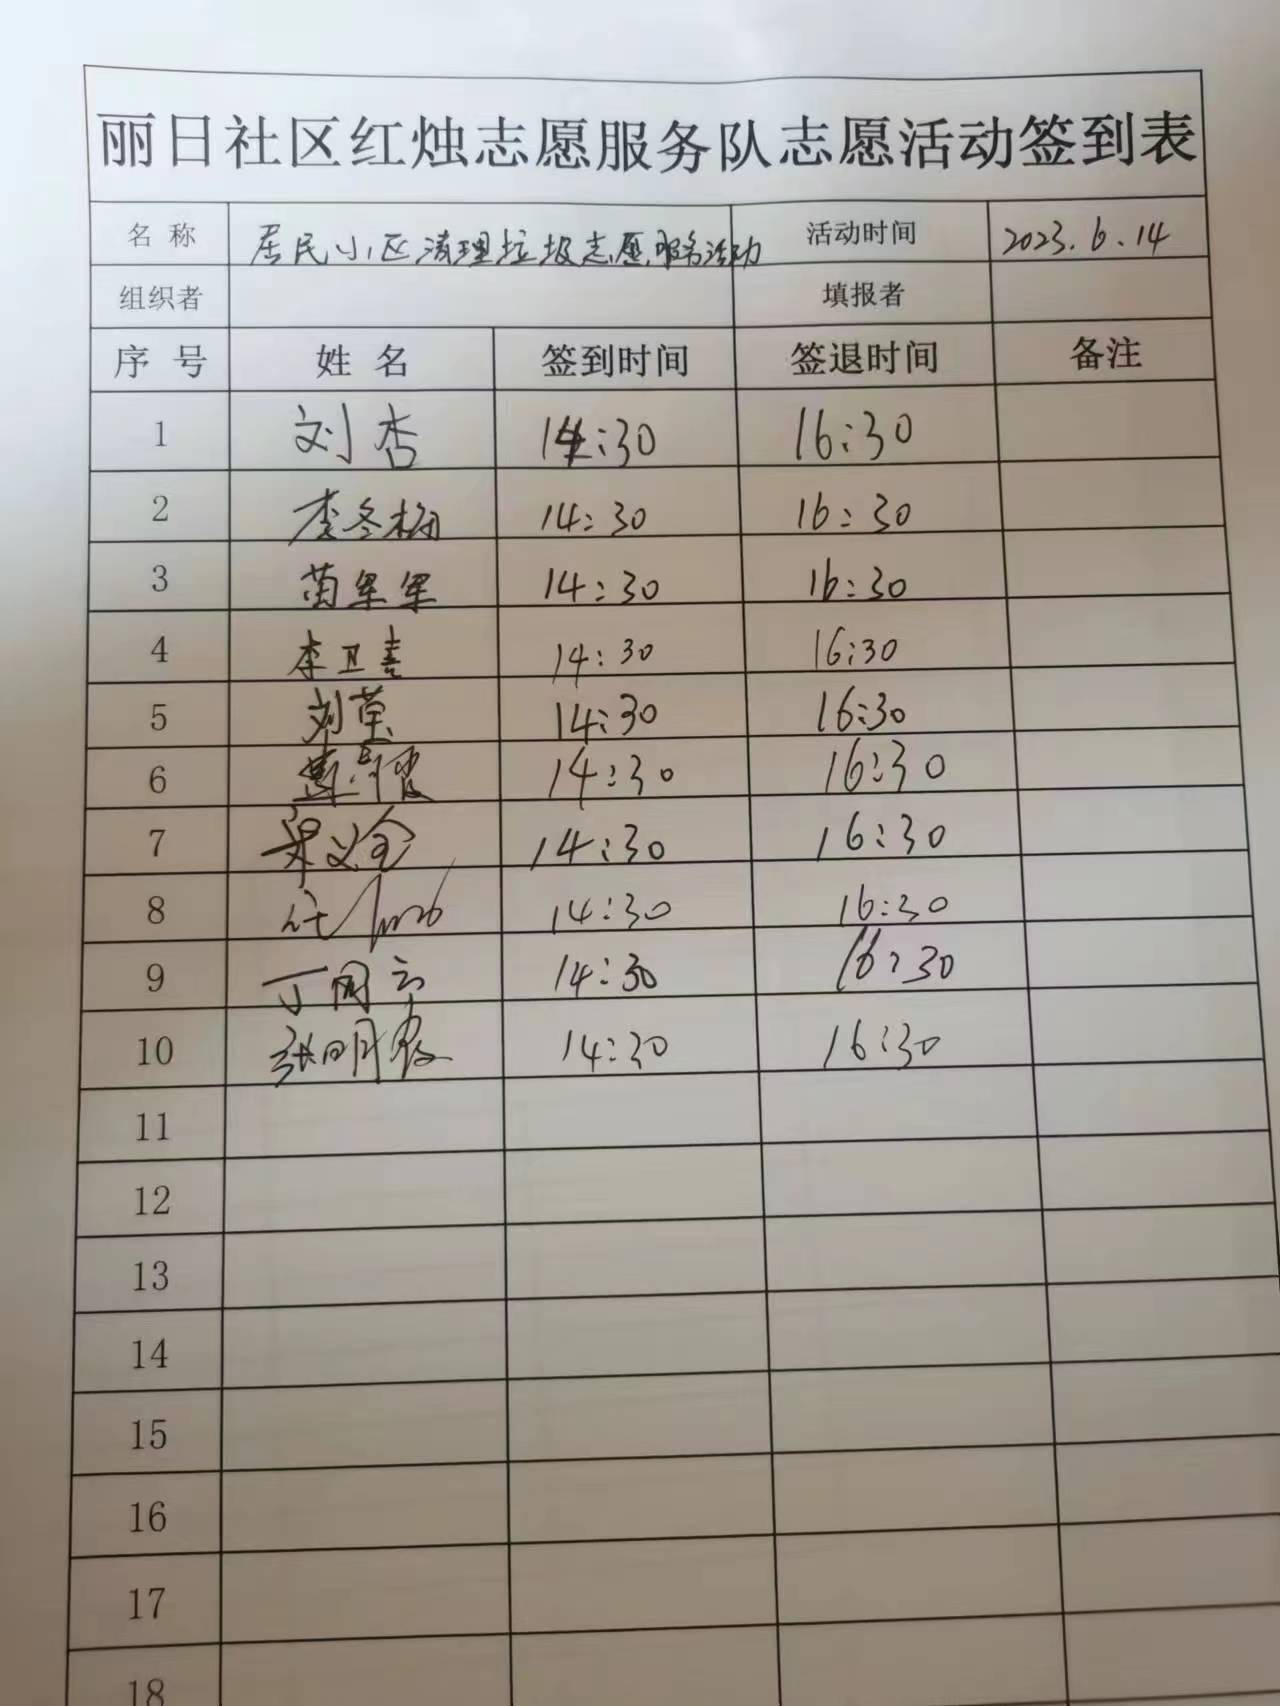 丽日社区红烛志愿服务队志愿活动签到表
名称 居民小区清理垃圾志愿服务活动 活动时间 2023.6.14
组织者 填报者
序号 姓名 签到时间 签退时间 备注
1 刘杏 14:30 16:30
2 李冬梅 14:30 16:30
3 苗军军 14:30 16:30
4 李卫喜 14:30 16:30
5 刘莹 14:30 16:30
6 14:30 16:30
7 梁义全 14:30 16:30
8 14:30 16:30
9 14:30 16:30
10 14:30 16:30
11
12
13
14
15
16
17
18